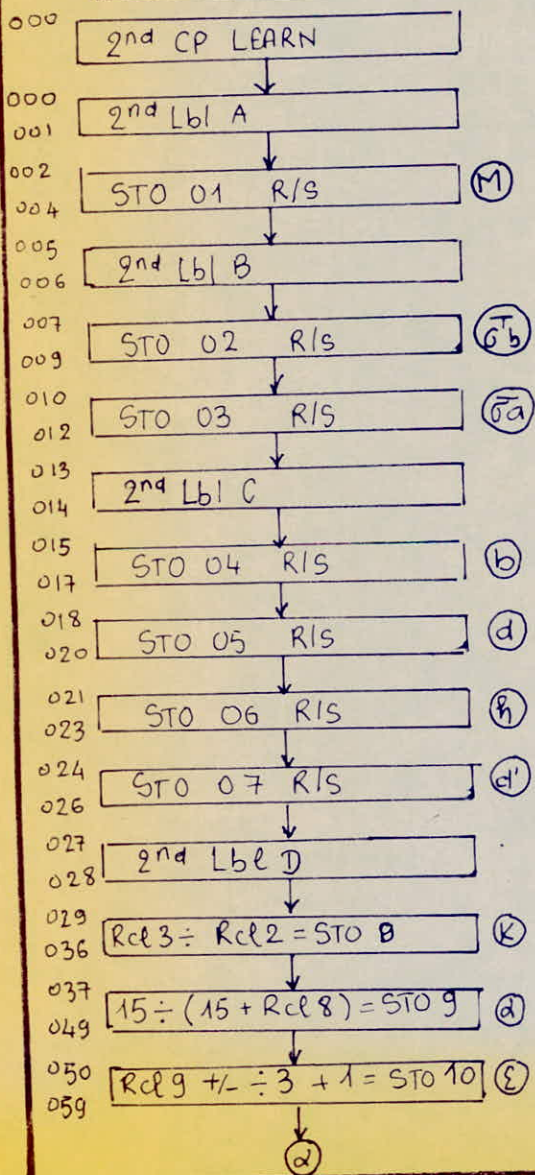 000
2nd CP LEARN
000
001
2nd Lbl A
002
004
STO 01 R/S
M
005
006
2nd Lbl B
007
009
STO 02 R/S
σ̄b
010
012
STO 03 R/S
σ̄a
013
014
2nd Lbl C
015
017
STO 04 R/S
b
018
020
STO 05 R/S
d
021
023
STO 06 R/S
h
024
026
STO 07 R/S
d'
027
028
2nd Lbl D
029
036
Rcl 3 ÷ Rcl 2 = STO 8
K
037
049
15 ÷ (15 + Rcl 8) = STO 9
α
050
059
Rcl 9 +/- ÷ 3 + 1 = STO 10
Ɛ
α